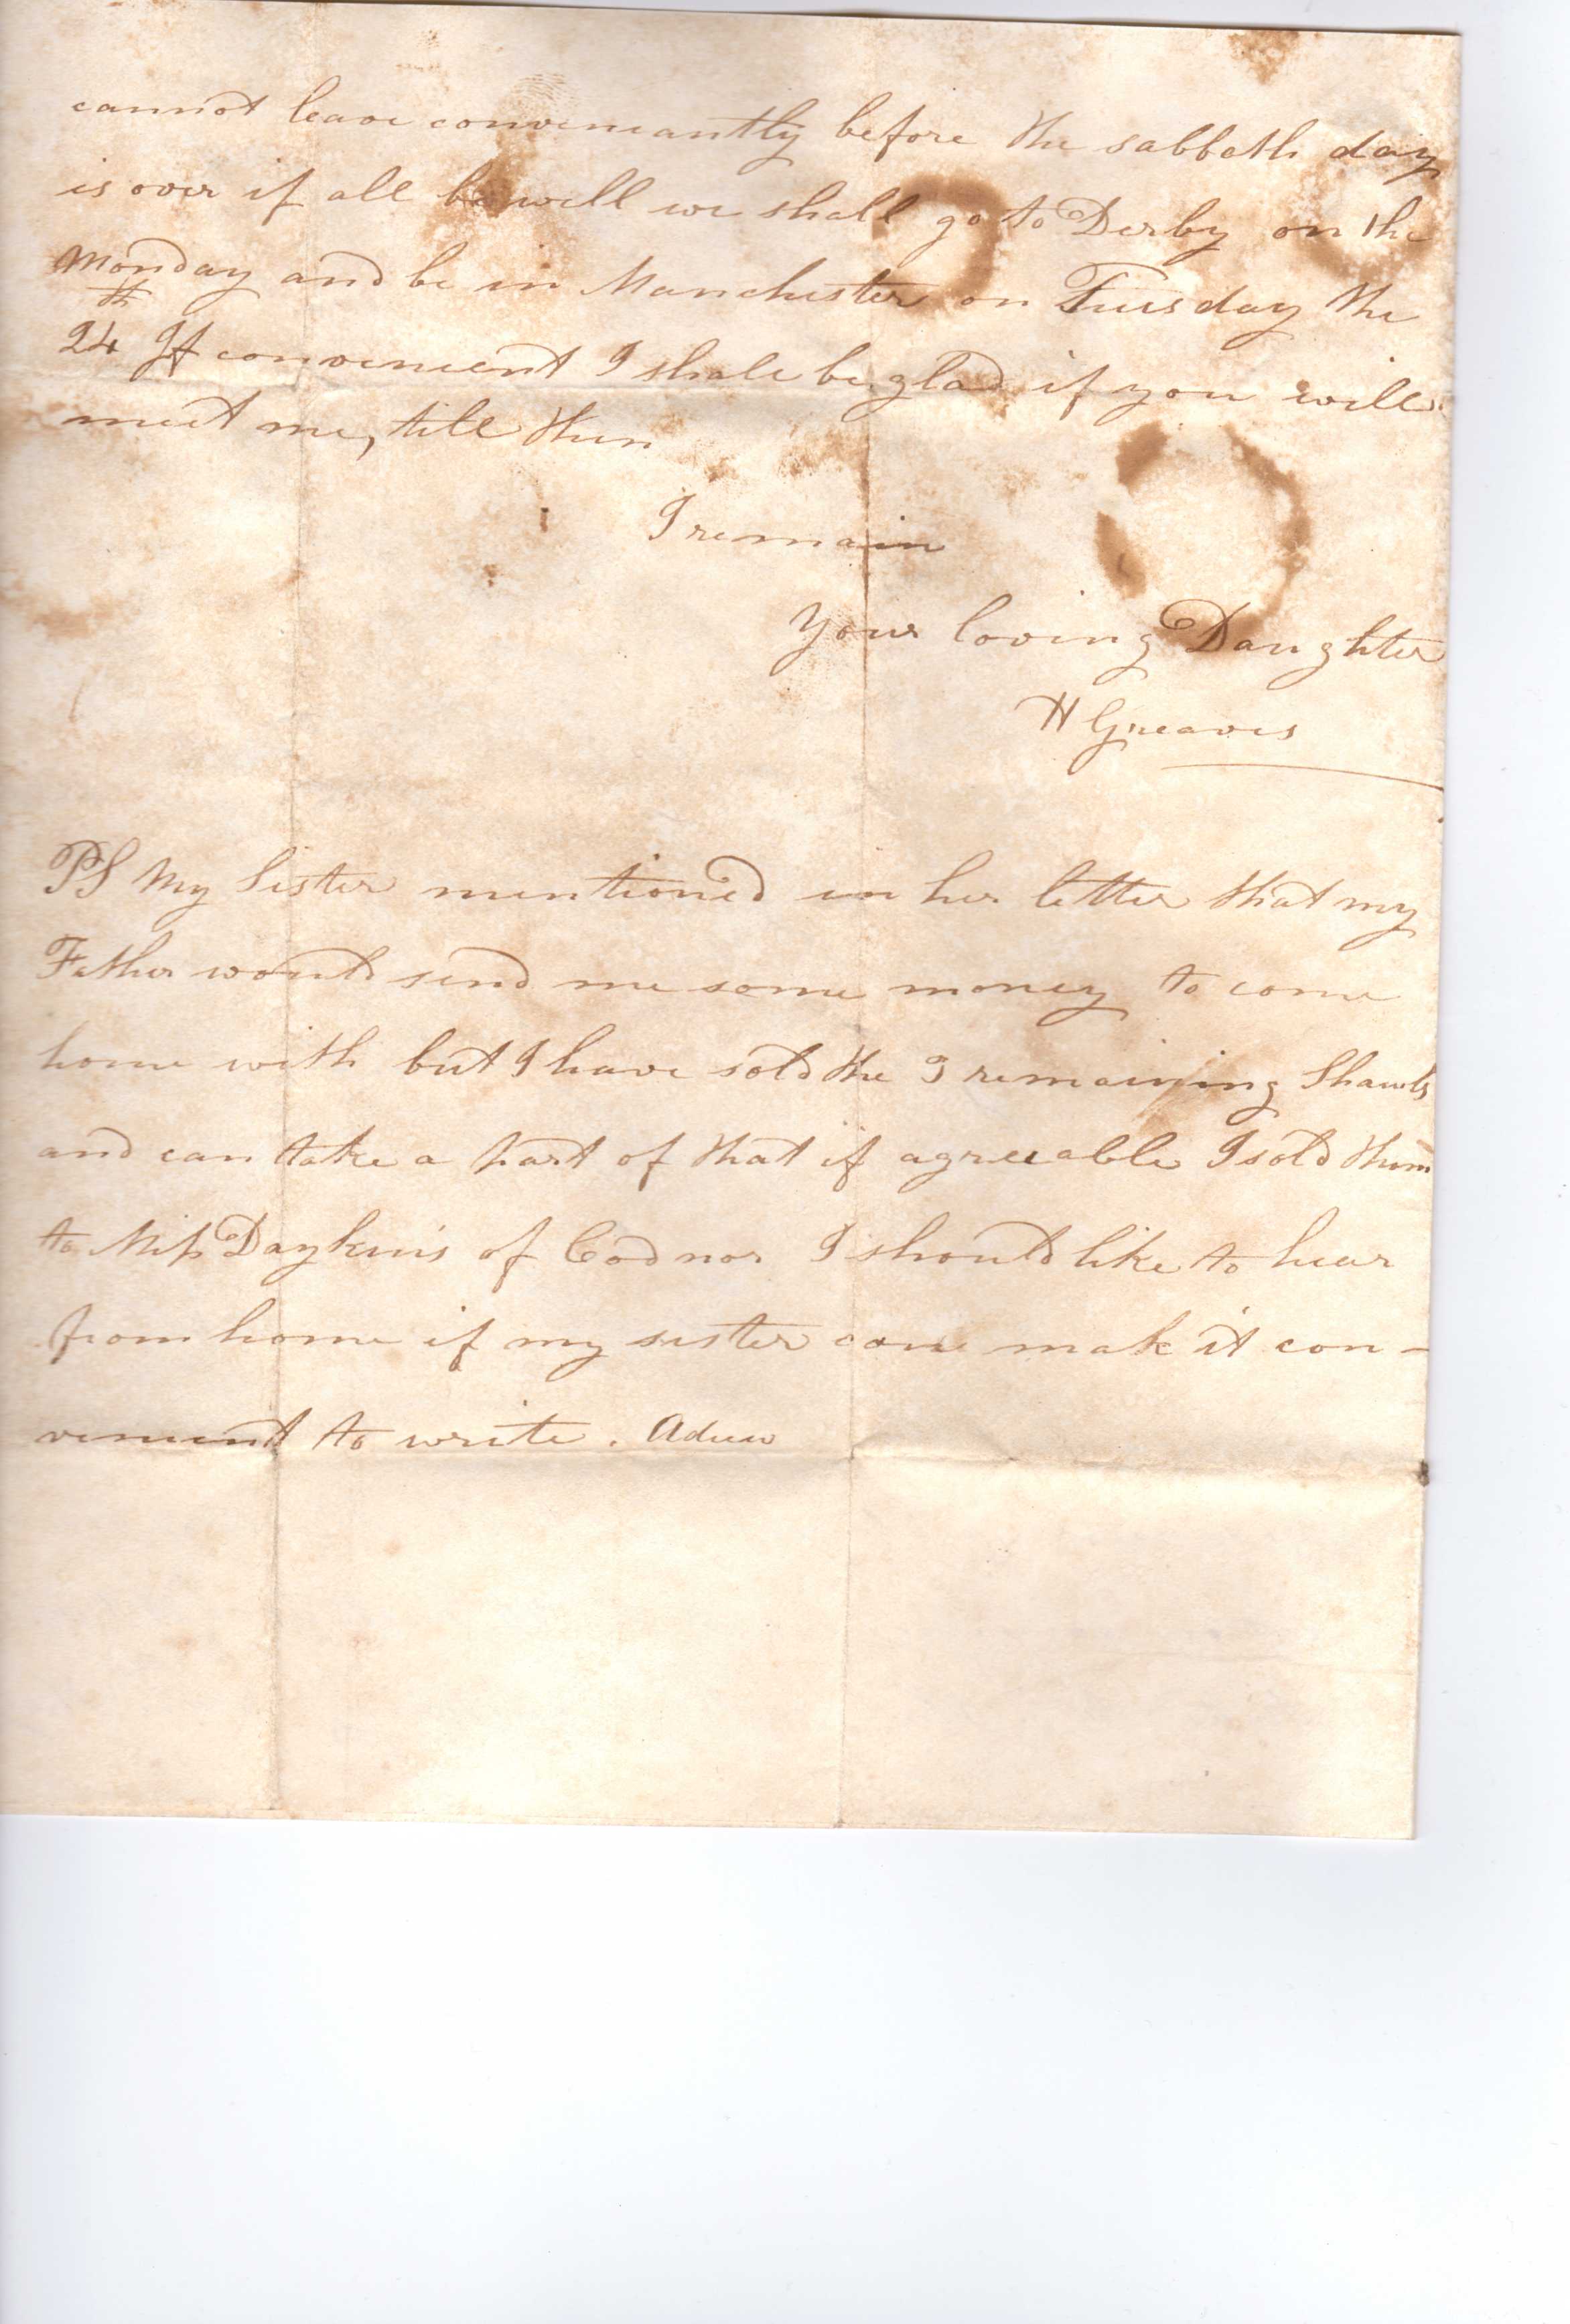 cannot leave conveneantly before the sabbath day
is over if all be well we shall go to Derby on the
Monday and be in Manchester on Tuesday the
24th If convenient I shall be glad if you will
meet me, till then
I remain
Your loving Daughter
H Greaves
PS My Sister mentioned in her letter that my
Father would send me some money to come
home with but I have sold the remaining Shawls
and can take a part of that if agreeable I sold them
to Miss Daykins of Codnor I should like to hear
from home if my sister can make it con-
venient to write. Adieu